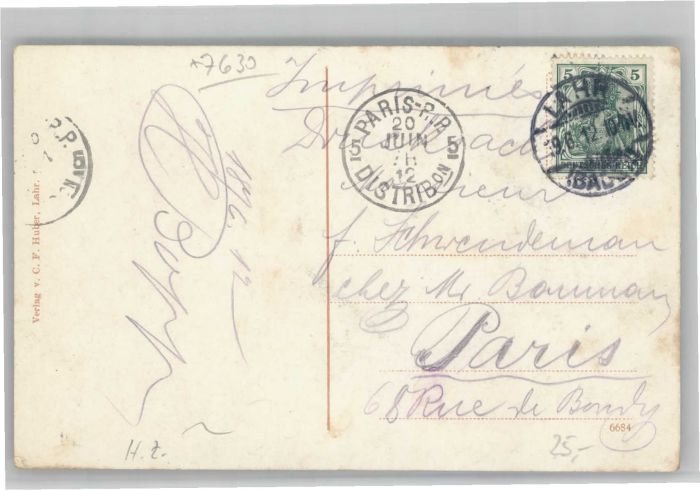 *7630
Imprimés
Drucksache
Monsieur
J. Schwendeman
chez Mr Bauman
Paris
68 Rue de Bondy
PARIS-P.R.
20
JUIN
12
5 5
DISTRIBON
5 5
LAHR
(BADEN)
18/6. 12
Verlag v. C. F. Huber, Lahr.
6684
H. z.
25,-